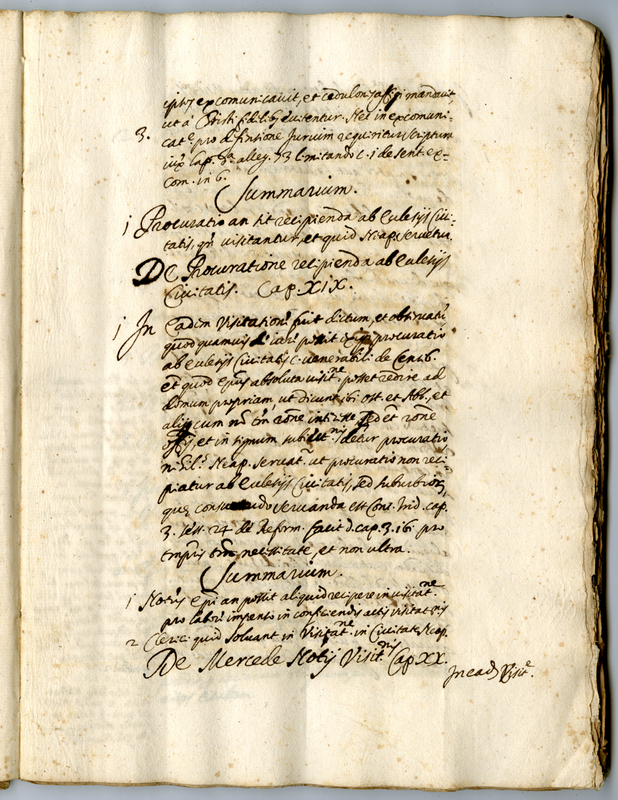 excomunicavit, et cedulones mandavit,
ut à Christi fidelib. evitentur. Nec in excomuni-
3. catᵉ pro defensione Jurium requiritur scriptum
cap. alleg. 73 limitando c. 1 de sent. ex-
com. in 6.
Summarium.
1 Procuratio an sit recipienda ab Eclesijs Civi-
tatis, qñ visitantur, et quid Neap. servetur.
De Procuratione recipienda ab Eclesijs
Civitatis. Cap. XIX.
1 In Eadem Visitationᵉ fuit dictum, et observatũ
quod quamvis de iure possit exigi procuratio
ab Eclesijs Civitatis c. venerabili de Censib.
et quod Epũs absoluta visitⁿᵉ posset redire ad
domum propriam, ut dicunt ibi ost. et Abb., et
alij cum nõ tm̃ rõne sed et rõne
et in signum detur procuratio
Neap. servat. ut procuratio non reci-
piatur ab Eclesijs Civitatis, sed suburbiorᵐ,
que consuetudo servanda est Conc. Trid. cap.
3. sess. 24 de Reform. facit d. cap. 3. ibi pro
tempris tm̃ necessitate, et non ultra.
Summarium.
1 Notũs Epi an possit aliquid recipere in visitatⁿᵉ
pro laborᵉ impenso in conficiendis actis visitatⁿⁱˢ
2 Clerici quid solvant in Visitatⁿᵉ in Civitate Neap.
De Mercede Notij Visitⁿⁱˢ Cap XX.
In ead. Visitᵉ.